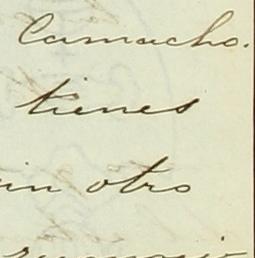 Camacho.
tienes
in otro